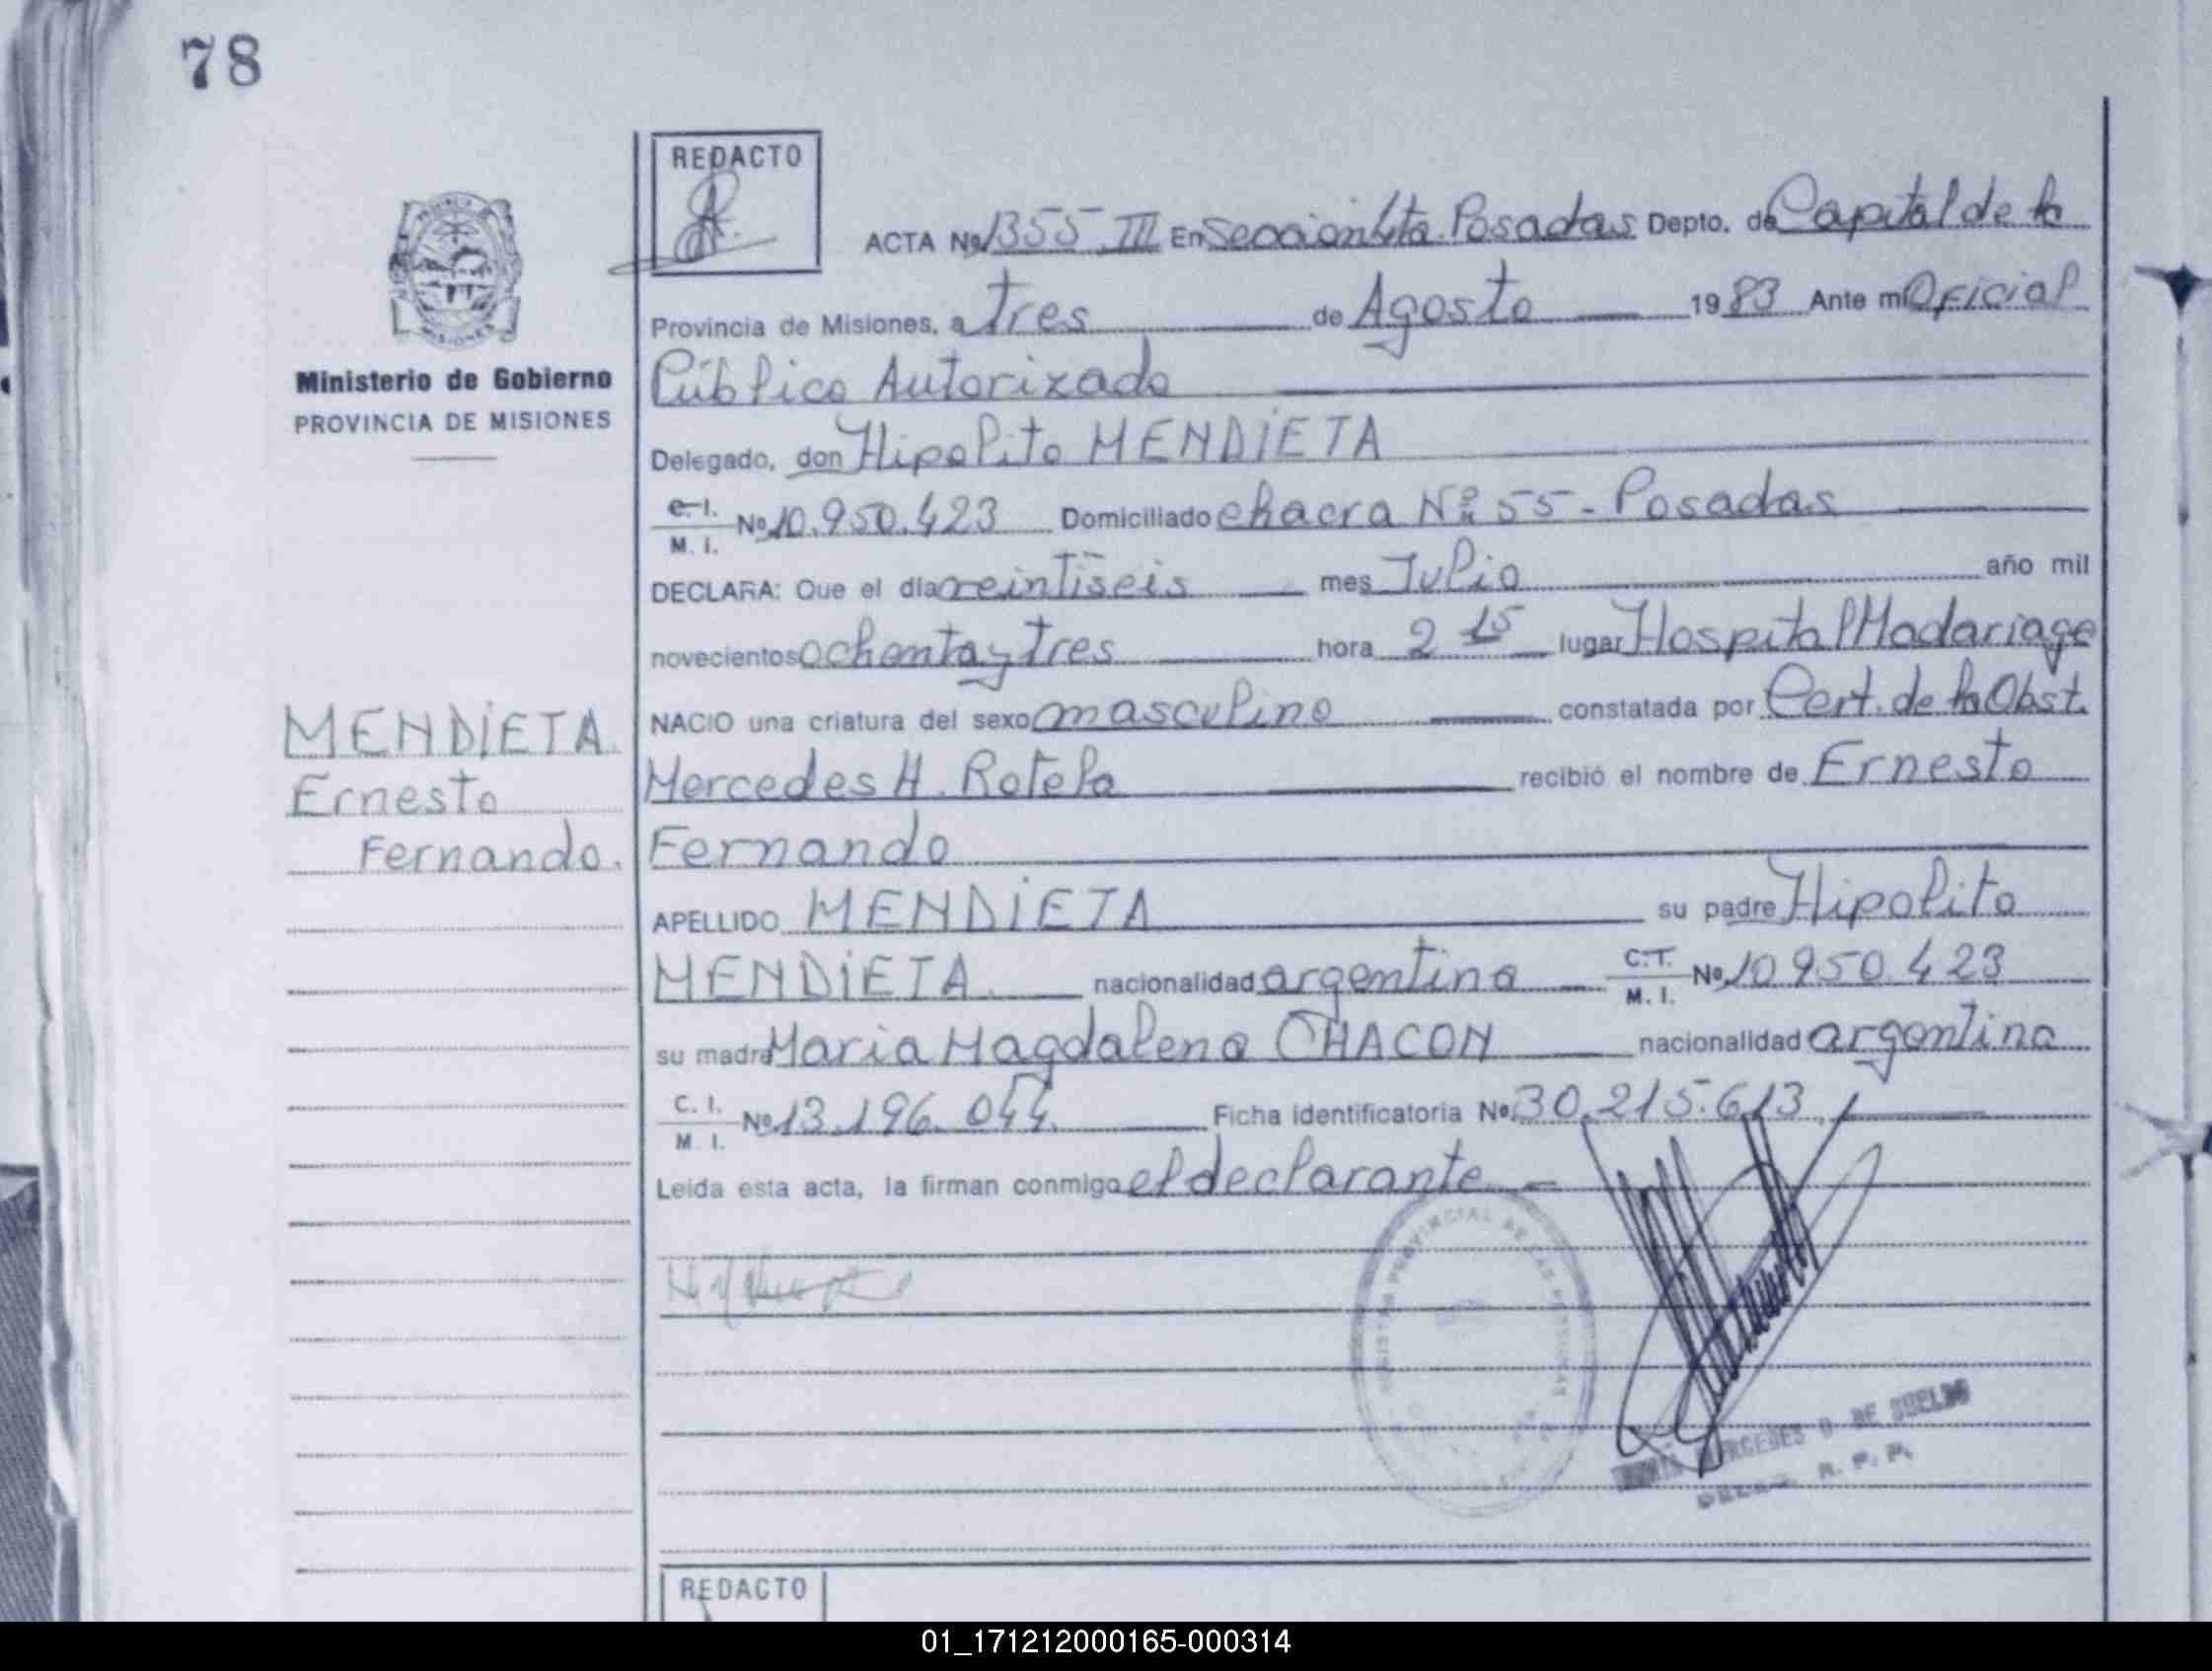 78
REDACTO
ACTA Nº 1355 III En Sección 6ta. Posadas Depto. de Capital de la
Provincia de Misiones, a tres de Agosto 1983 Ante mí Oficial
Público Autorizado
Ministerio de Gobierno
PROVINCIA DE MISIONES
Delegado, don Hipolito MENDIETA
C.I. M. I. Nº 10.950.423 Domiciliado chacra Nº 55 - Posadas
DECLARA: Que el día veintiseis mes Julio año mil
novecientos ochenta y tres hora 2 15 lugar Hospital Madariaga
NACIO una criatura del sexo masculino constatada por Cert. de la Obst.
Mercedes H. Rotela recibió el nombre de Ernesto
Fernando
MENDIETA
Ernesto
Fernando.
APELLIDO MENDIETA su padre Hipolito
MENDIETA nacionalidad argentina C.I. M. I. Nº 10.950.423
su madre Maria Magdalena CHACON nacionalidad argentina
C. I. M. I. Nº 13.196.044 Ficha identificatoria Nº 30.215.613
Leída esta acta, la firman conmigo el declarante
PROVINCIAL DE LAS PERSONAS
MERCEDES D. DE SUELDO
R. P. P.
REDACTO
01_171212000165-000314